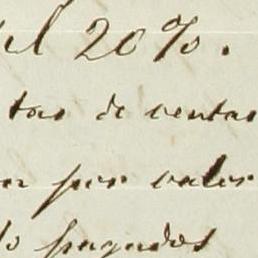 el 20%.
tas de ventas
n por valer
do pagados